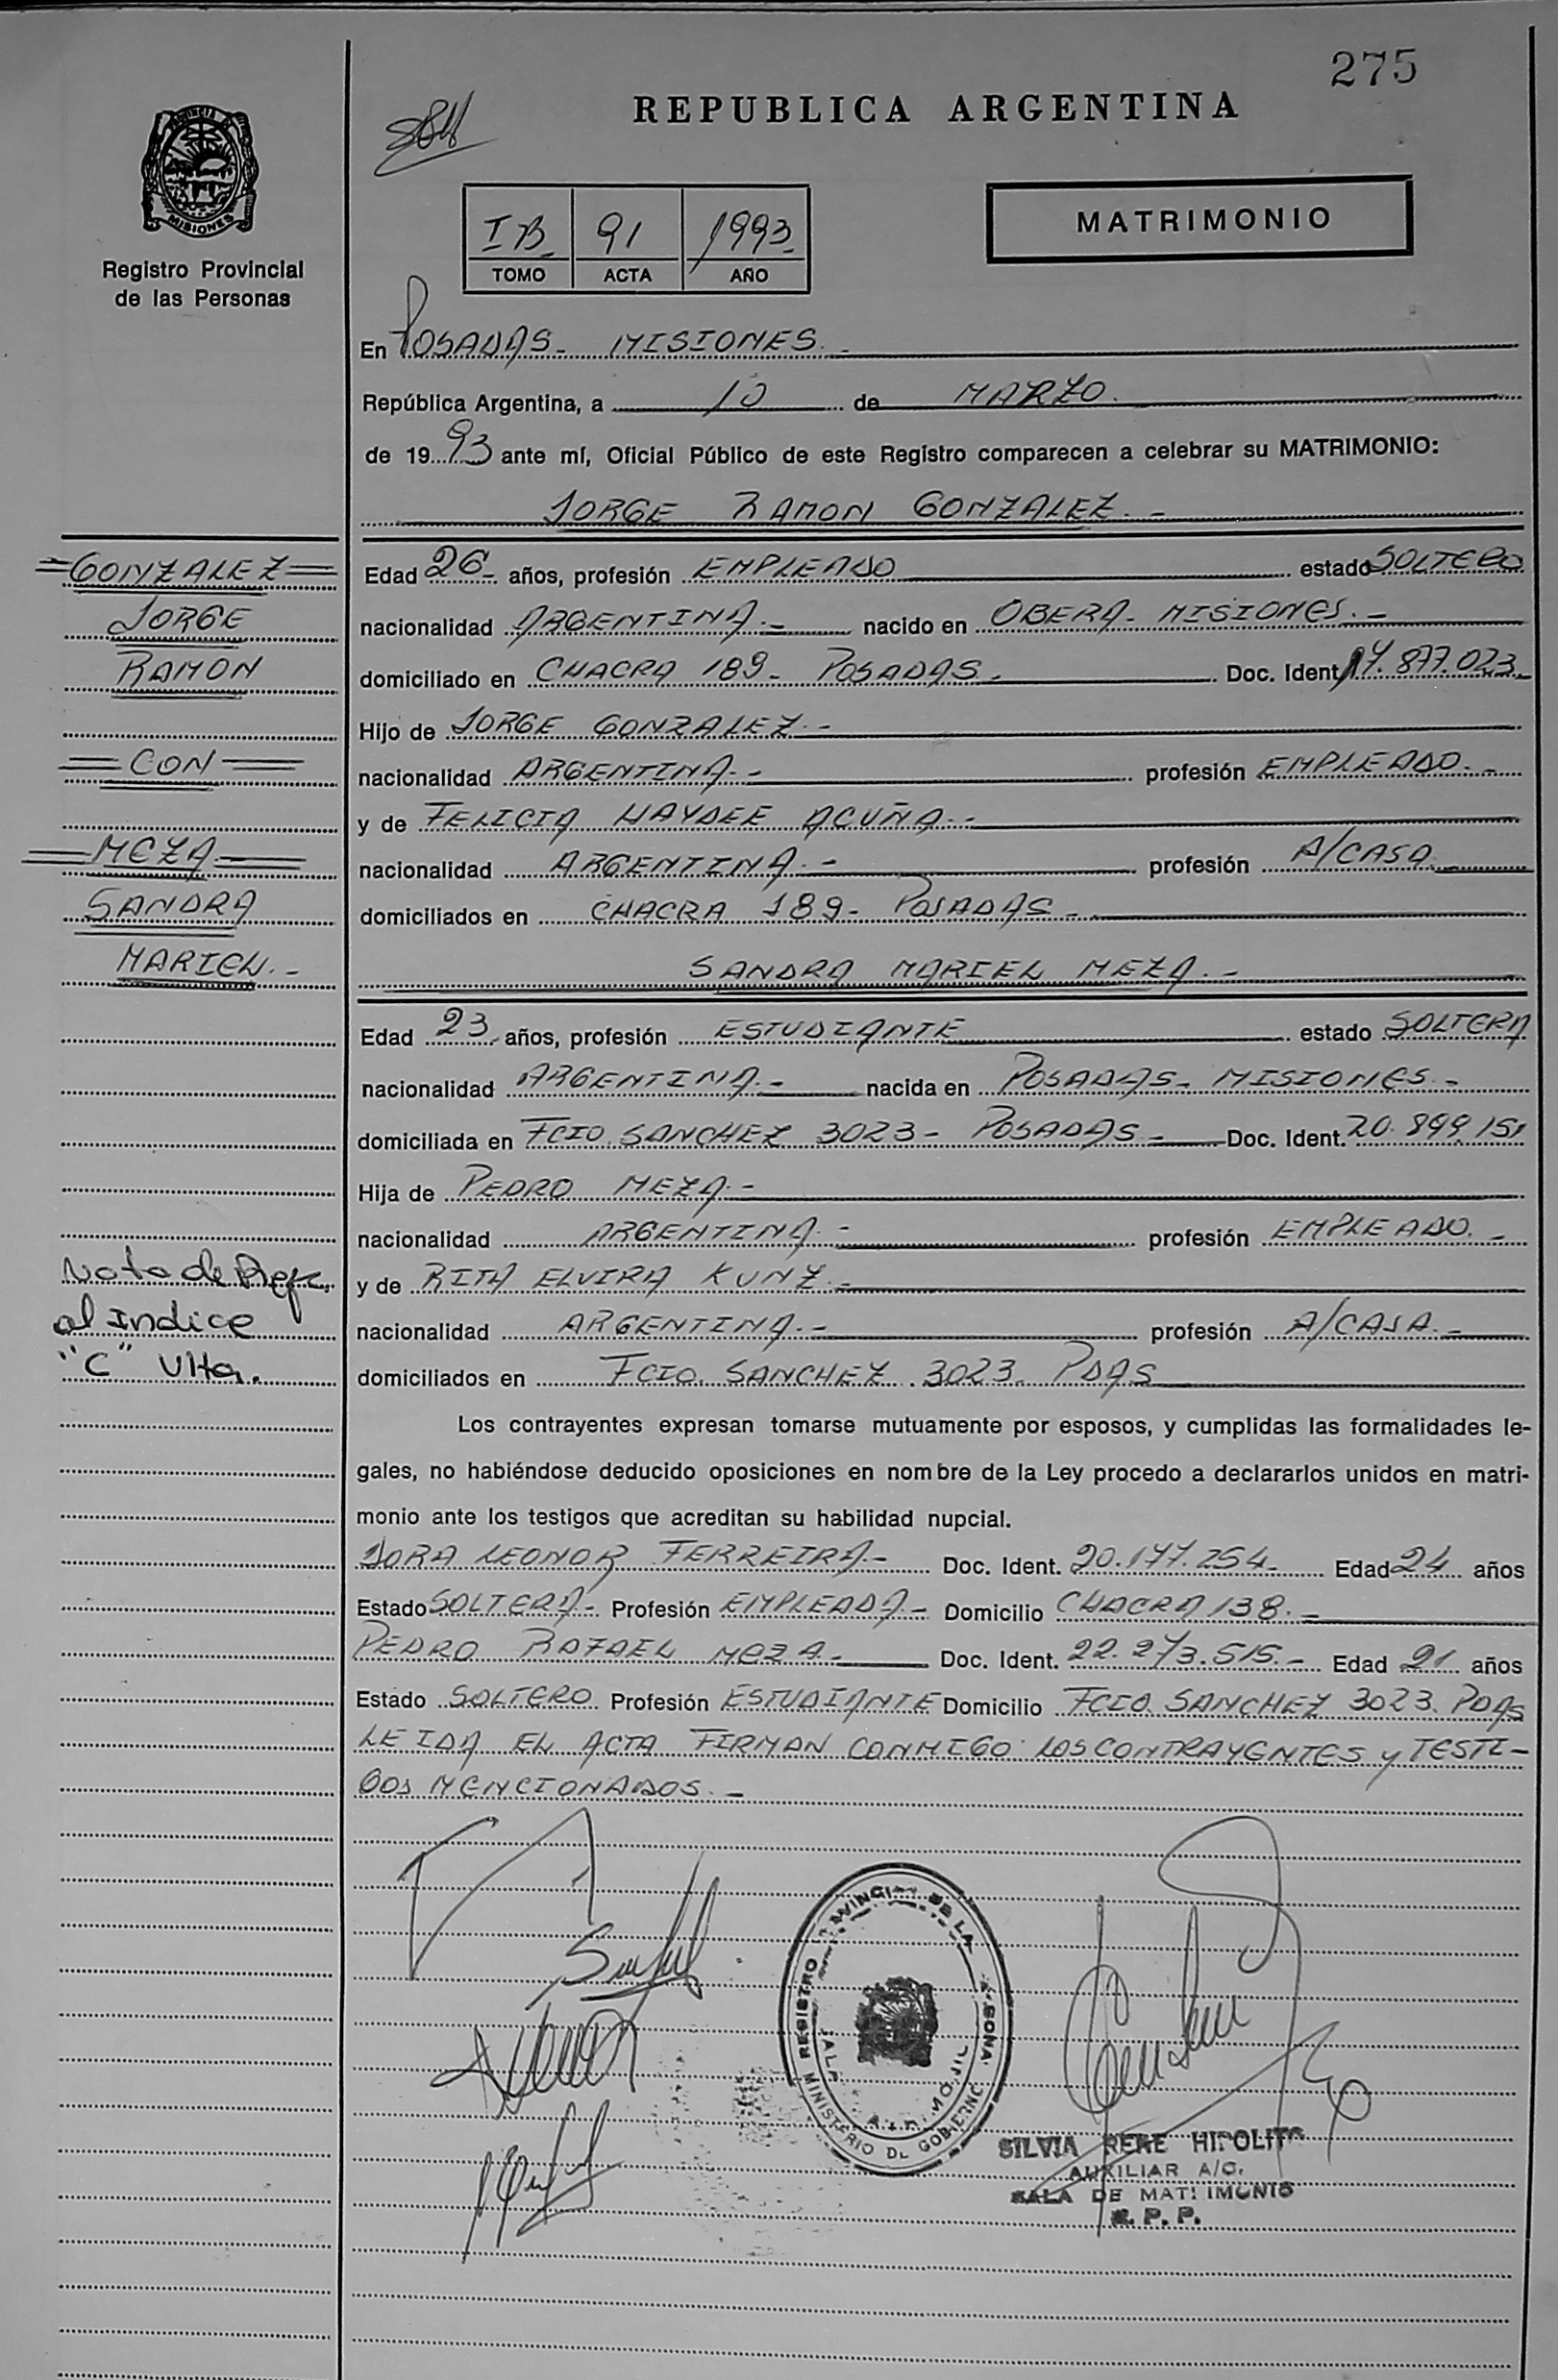 275
REPUBLICA ARGENTINA
MISIONES
Registro Provincial
de las Personas
IB 91 1993
TOMO ACTA AÑO
MATRIMONIO
En POSADAS - MISIONES.-
República Argentina, a 10 de MARZO.
de 1993 ante mí, Oficial Público de este Registro comparecen a celebrar su MATRIMONIO:
JORGE RAMON GONZALEZ.-
=GONZALEZ= Edad 26 años, profesión EMPLEADO estado SOLTERO
JORGE nacionalidad ARGENTINA.- nacido en OBERA - MISIONES.-
RAMON domiciliado en CHACRA 189 - POSADAS.- Doc. Ident. 17.877.023.
Hijo de JORGE GONZALEZ.-
=CON= nacionalidad ARGENTINA.- profesión EMPLEADO.-
y de FELICIA HAYDEE ACUÑA.-
=MEZA= nacionalidad ARGENTINA.- profesión A/CASA
SANDRA domiciliados en CHACRA 189 - POSADAS -
MARIEL.- SANDRA MARIEL MEZA.-
Edad 23 años, profesión ESTUDIANTE estado SOLTERA
nacionalidad ARGENTINA.- nacida en POSADAS - MISIONES.-
domiciliada en FCIO. SANCHEZ 3023 - POSADAS - Doc. Ident. 20.899.151
Hija de PEDRO MEZA.-
nacionalidad ARGENTINA.- profesión EMPLEADO.-
Nota de y de RITA ELVIRA KUNZ.-
al Indice nacionalidad ARGENTINA.- profesión A/CASA.-
"C" Vlta. domiciliados en FCIO. SANCHEZ 3023. PDAS
Los contrayentes expresan tomarse mutuamente por esposos, y cumplidas las formalidades le-
gales, no habiéndose deducido oposiciones en nombre de la Ley procedo a declararlos unidos en matri-
monio ante los testigos que acreditan su habilidad nupcial.
LEONOR FERREIRA.- Doc. Ident. 20.177.254.- Edad 24 años
Estado SOLTERA.- Profesión EMPLEADA.- Domicilio CHACRA 138.-
PEDRO RAFAEL MEZA.- Doc. Ident. 22.273.515.- Edad 21 años
Estado SOLTERO Profesión ESTUDIANTE Domicilio FCIO. SANCHEZ 3023. PDAS
LEIDA EL ACTA FIRMAN CONMIGO LOS CONTRAYENTES y TESTI-
GOS MENCIONADOS.-
REGISTRO DE LA
MINISTERIO DE GOBIERNO
SILVIA RENE HIPOLITO
AUXILIAR A/C.
SALA DE MATRIMONIO
R. P. P.